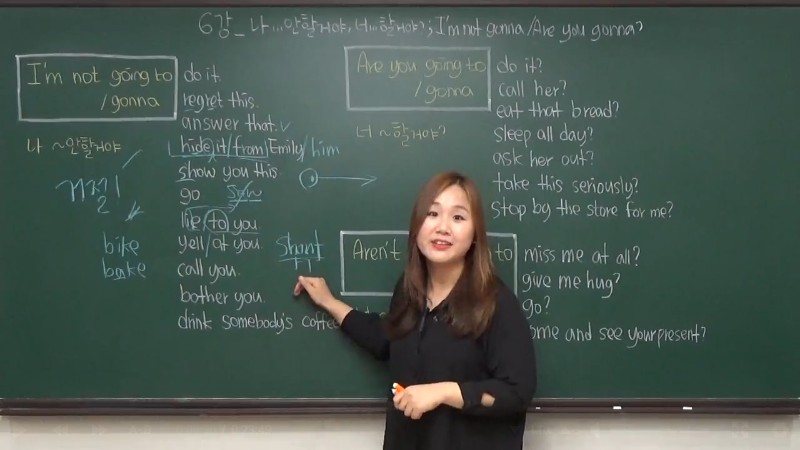 6강_나...안할거야, 너...안할거야?; I'm not gonna/Are you gonna?
I'm not going to
/gonna
나 ~안할거야
do it.
regret this.
answer that.
hide/it/from/Emily/him
show you this.
go
Saw
lie/to you.
yell/at you.
call you.
bother you.
drink somebody's coffee
2
bike
bake
Shout
Are you going to
/gonna
너 ~할거야?
do it?
call her?
eat that bread?
sleep all day?
ask her out?
take this seriously?
stop by the store for me?
Aren't
to
miss me at all?
give me hug?
go?
and see your present?